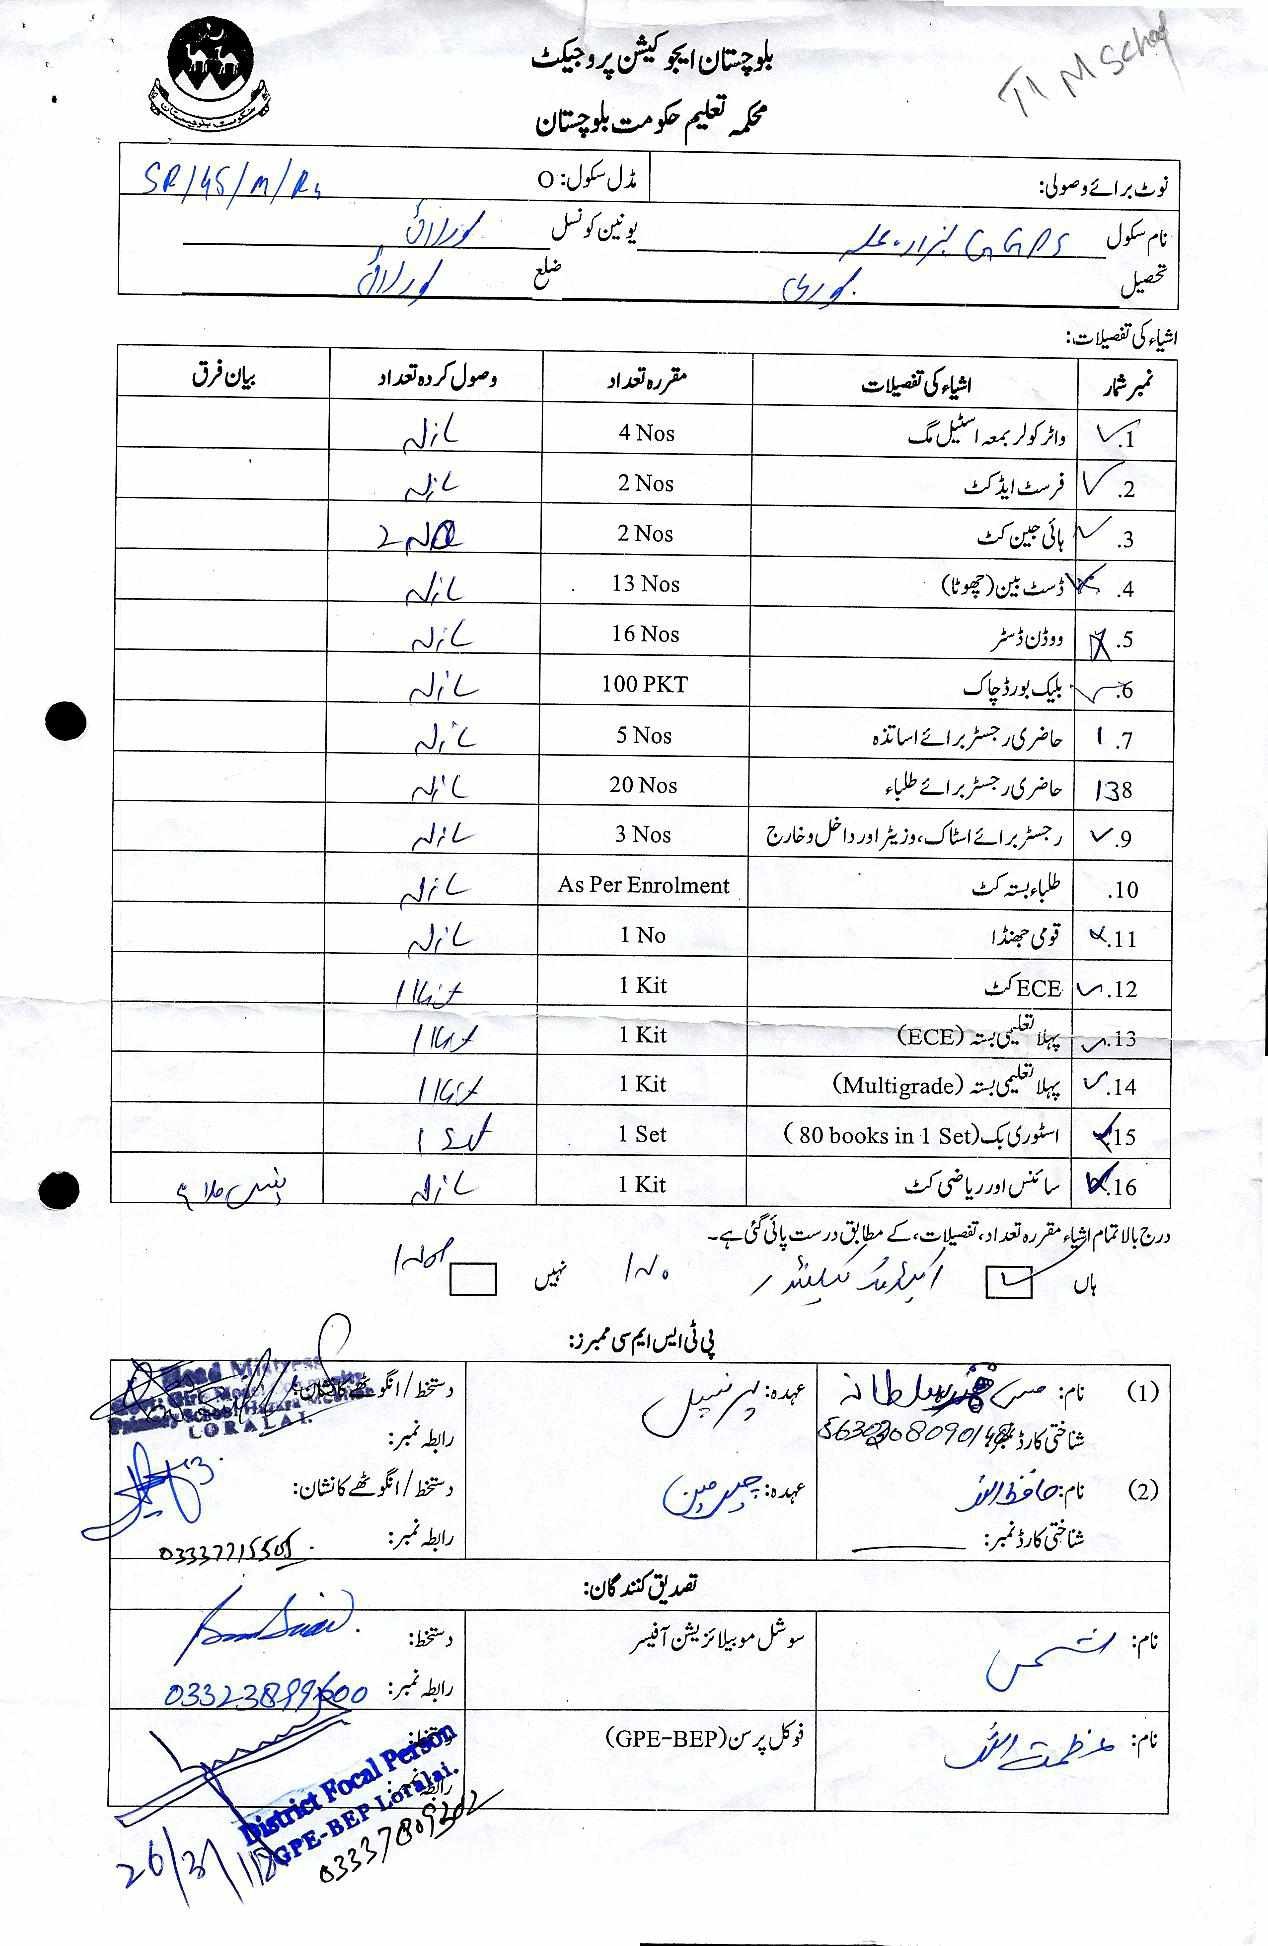 T1 M School
بلوچستان ایجوکیشن پروجیکٹ
محکمہ تعلیم حکومت بلوچستان
نوٹ برائے وصولی: مڈل سکول: O SR/45/M/R4
نام سکول GGPS ہزارہ محلہ یونین کونسل لورالائی
تحصیل بوری ضلع لورالائی
اشیاء کی تفصیلات:
نمبر شمار اشیاء کی تفصیلات مقررہ تعداد وصول کردہ تعداد بیان فرق
1. واٹر کولر بمعہ اسٹیل مگ 4 Nos Nil
2. فرسٹ ایڈ کٹ 2 Nos Nil
3. ہائی جین کٹ 2 Nos 2 No
4. ڈسٹ بین (چھوٹا) 13 Nos Nil
5. ووڈن ڈسٹر 16 Nos Nil
6. بلیک بورڈ چاک 100 PKT Nil
7. حاضری رجسٹر برائے اساتذہ 5 Nos Nil
8 حاضری رجسٹر برائے طلباء 20 Nos Nil
9. رجسٹر برائے اسٹاک، وزیٹر اور داخل و خارج 3 Nos Nil
10. طلباء بستہ کٹ As Per Enrolment Nil
11. قومی جھنڈا 1 No Nil
12. ECE کٹ 1 Kit 1 Kit
13. پہلا تعلیمی بستہ (ECE) 1 Kit 1 Kit
14. پہلا تعلیمی بستہ (Multigrade) 1 Kit 1 Kit
15. اسٹوری بک (80 books in 1 Set) 1 Set 1 Set
16. سائنس اور ریاضی کٹ 1 Kit Nil نہیں ملا ہے
درج بالا تمام اشیاء مقررہ تعداد، تفصیلات، کے مطابق درست پائی گئی ہے۔
ہاں نہیں
پی ٹی ایس ایم سی ممبرز:
(1) نام: مس سلطانہ عہدہ: پرنسپل دستخط/انگوٹھے کا نشان:
Head Mistress
Primary School
LORALAI.
شناختی کارڈ نمبر: رابطہ نمبر:
(2) نام: حافظ اللہ عہدہ: چیئرمین دستخط/انگوٹھے کا نشان:
شناختی کارڈ نمبر: رابطہ نمبر: 03337715505
تصدیق کنندگان:
نام: شمس سوشل موبیلائزیشن آفیسر دستخط:
رابطہ نمبر: 03323899600
نام: عظمت اللہ فوکل پرسن (GPE-BEP) دستخط:
رابطہ نمبر:
District Focal Person
GPE-BEP Loralai.
03337809202